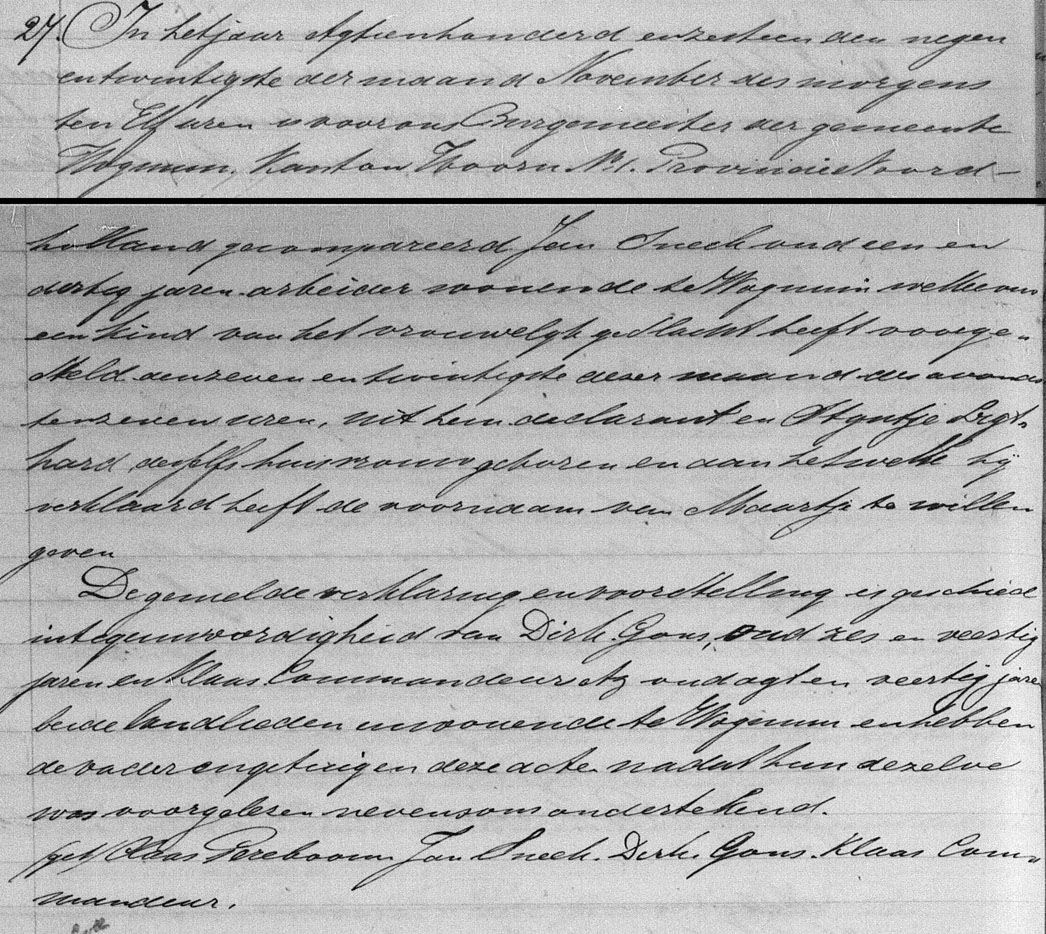 27. In het jaar Agtienhonderd en zestien den negen
en twintigste der maand November des morgens
ten Elf uren is voor ons Burgemeester der gemeente
Wognum, Kanton Hoorn No 1. Provincie Noord-
holland gecompareerd Jan Sneek oud een en
dertig jaren arbeider wonende te Wognum welke ons
een kind van het vrouwelyk geslacht heeft voorge-
steld den zeven en twintigste dezer maand des avonds
ten zeven uren, uit hem declarant en Styntje Ligt-
hard deszelfs huisvrouw geboren en aan hetwelk hij
verklaard heeft de voornaam van Maartje te willen
geven
De gemelde verklaring en voorstelling is geschied
in tegenwoordigheid van Dirk Gons, oud zes en veertig
jaren en Klaas Commandeur oud agt en veertig jaren
beide landlieden en wonende te Wognum en hebben
de vader en getuigen deze acte nadat hun dezelve
was voorgelezen nevens ons ondertekend.
(get) Klaas Pereboom Jan Sneek. Dirk Gons. Klaas Com-
mandeur.